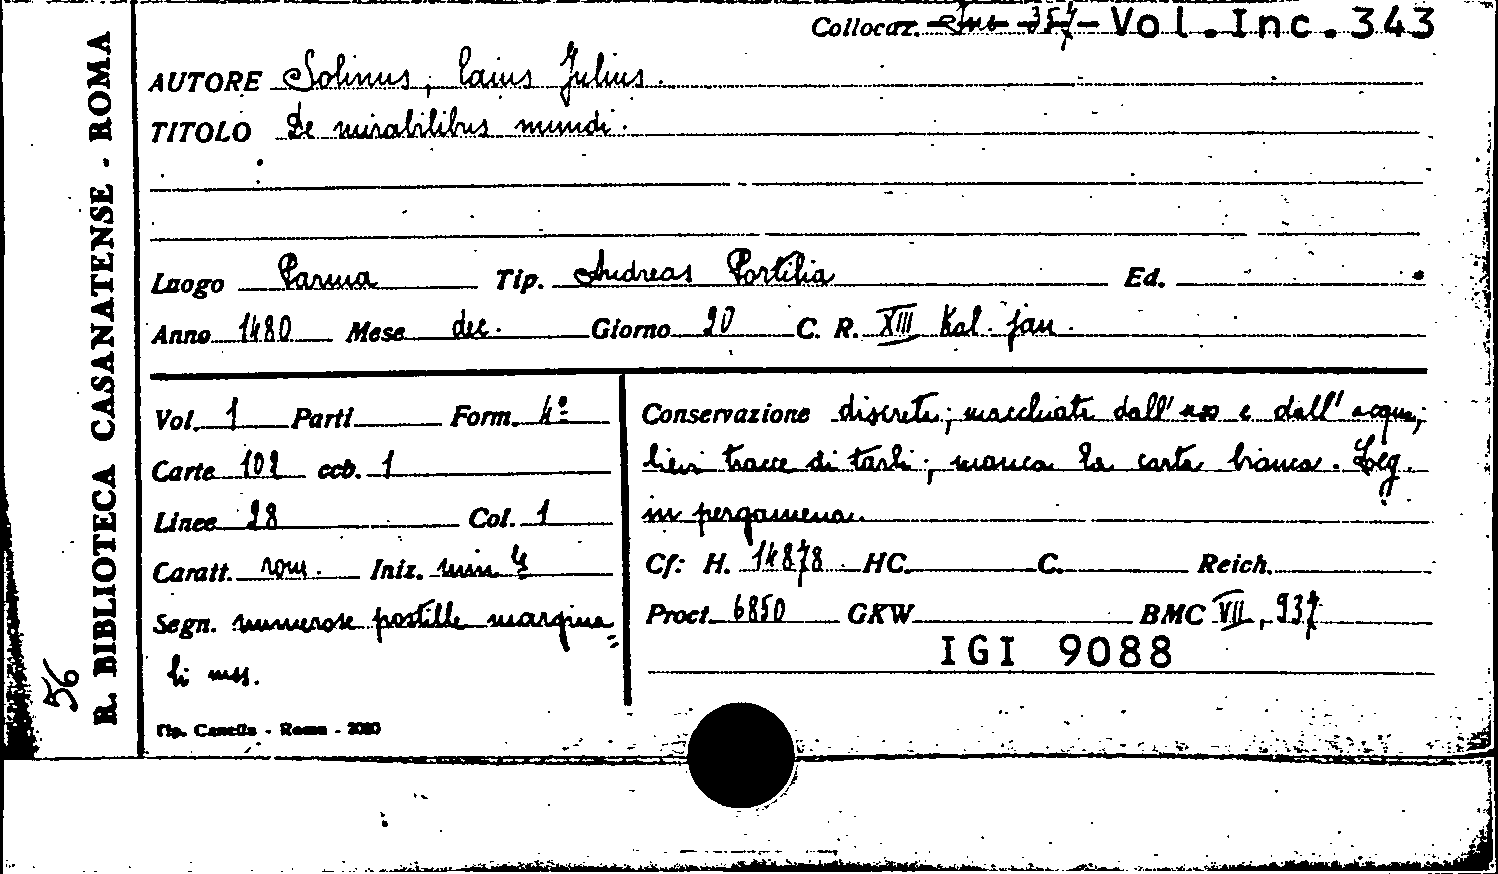 Collocaz. Inc 357 Vol.Inc.343
AUTORE Solinus, Caius Julius.
TITOLO De mirabilibus mundi.
Luogo Parma Tip. Andreas Portilia Ed.
Anno 1480 Mese dec. Giorno 20 C. R. XIII Kal. jan.
Vol. 1 Parti Form. 4º
Carte 102 ccb. 1
Linee 28 Col. 1
Caratt. rom. Iniz. min. 4
Segn. numerose postille margina=
li mss.
Conservazione discreta; macchiata dall'uso e dall'acqua;
lievi tracce di tarli; manca la carta bianca. Leg.
in pergamena.
Cf: H. 14878 HC. C. Reich.
Proct. 6850 GKW. BMC VII, 937
IGI 9088
Tip. Canella - Roma -
R. BIBLIOTECA CASANATENSE - ROMA
56